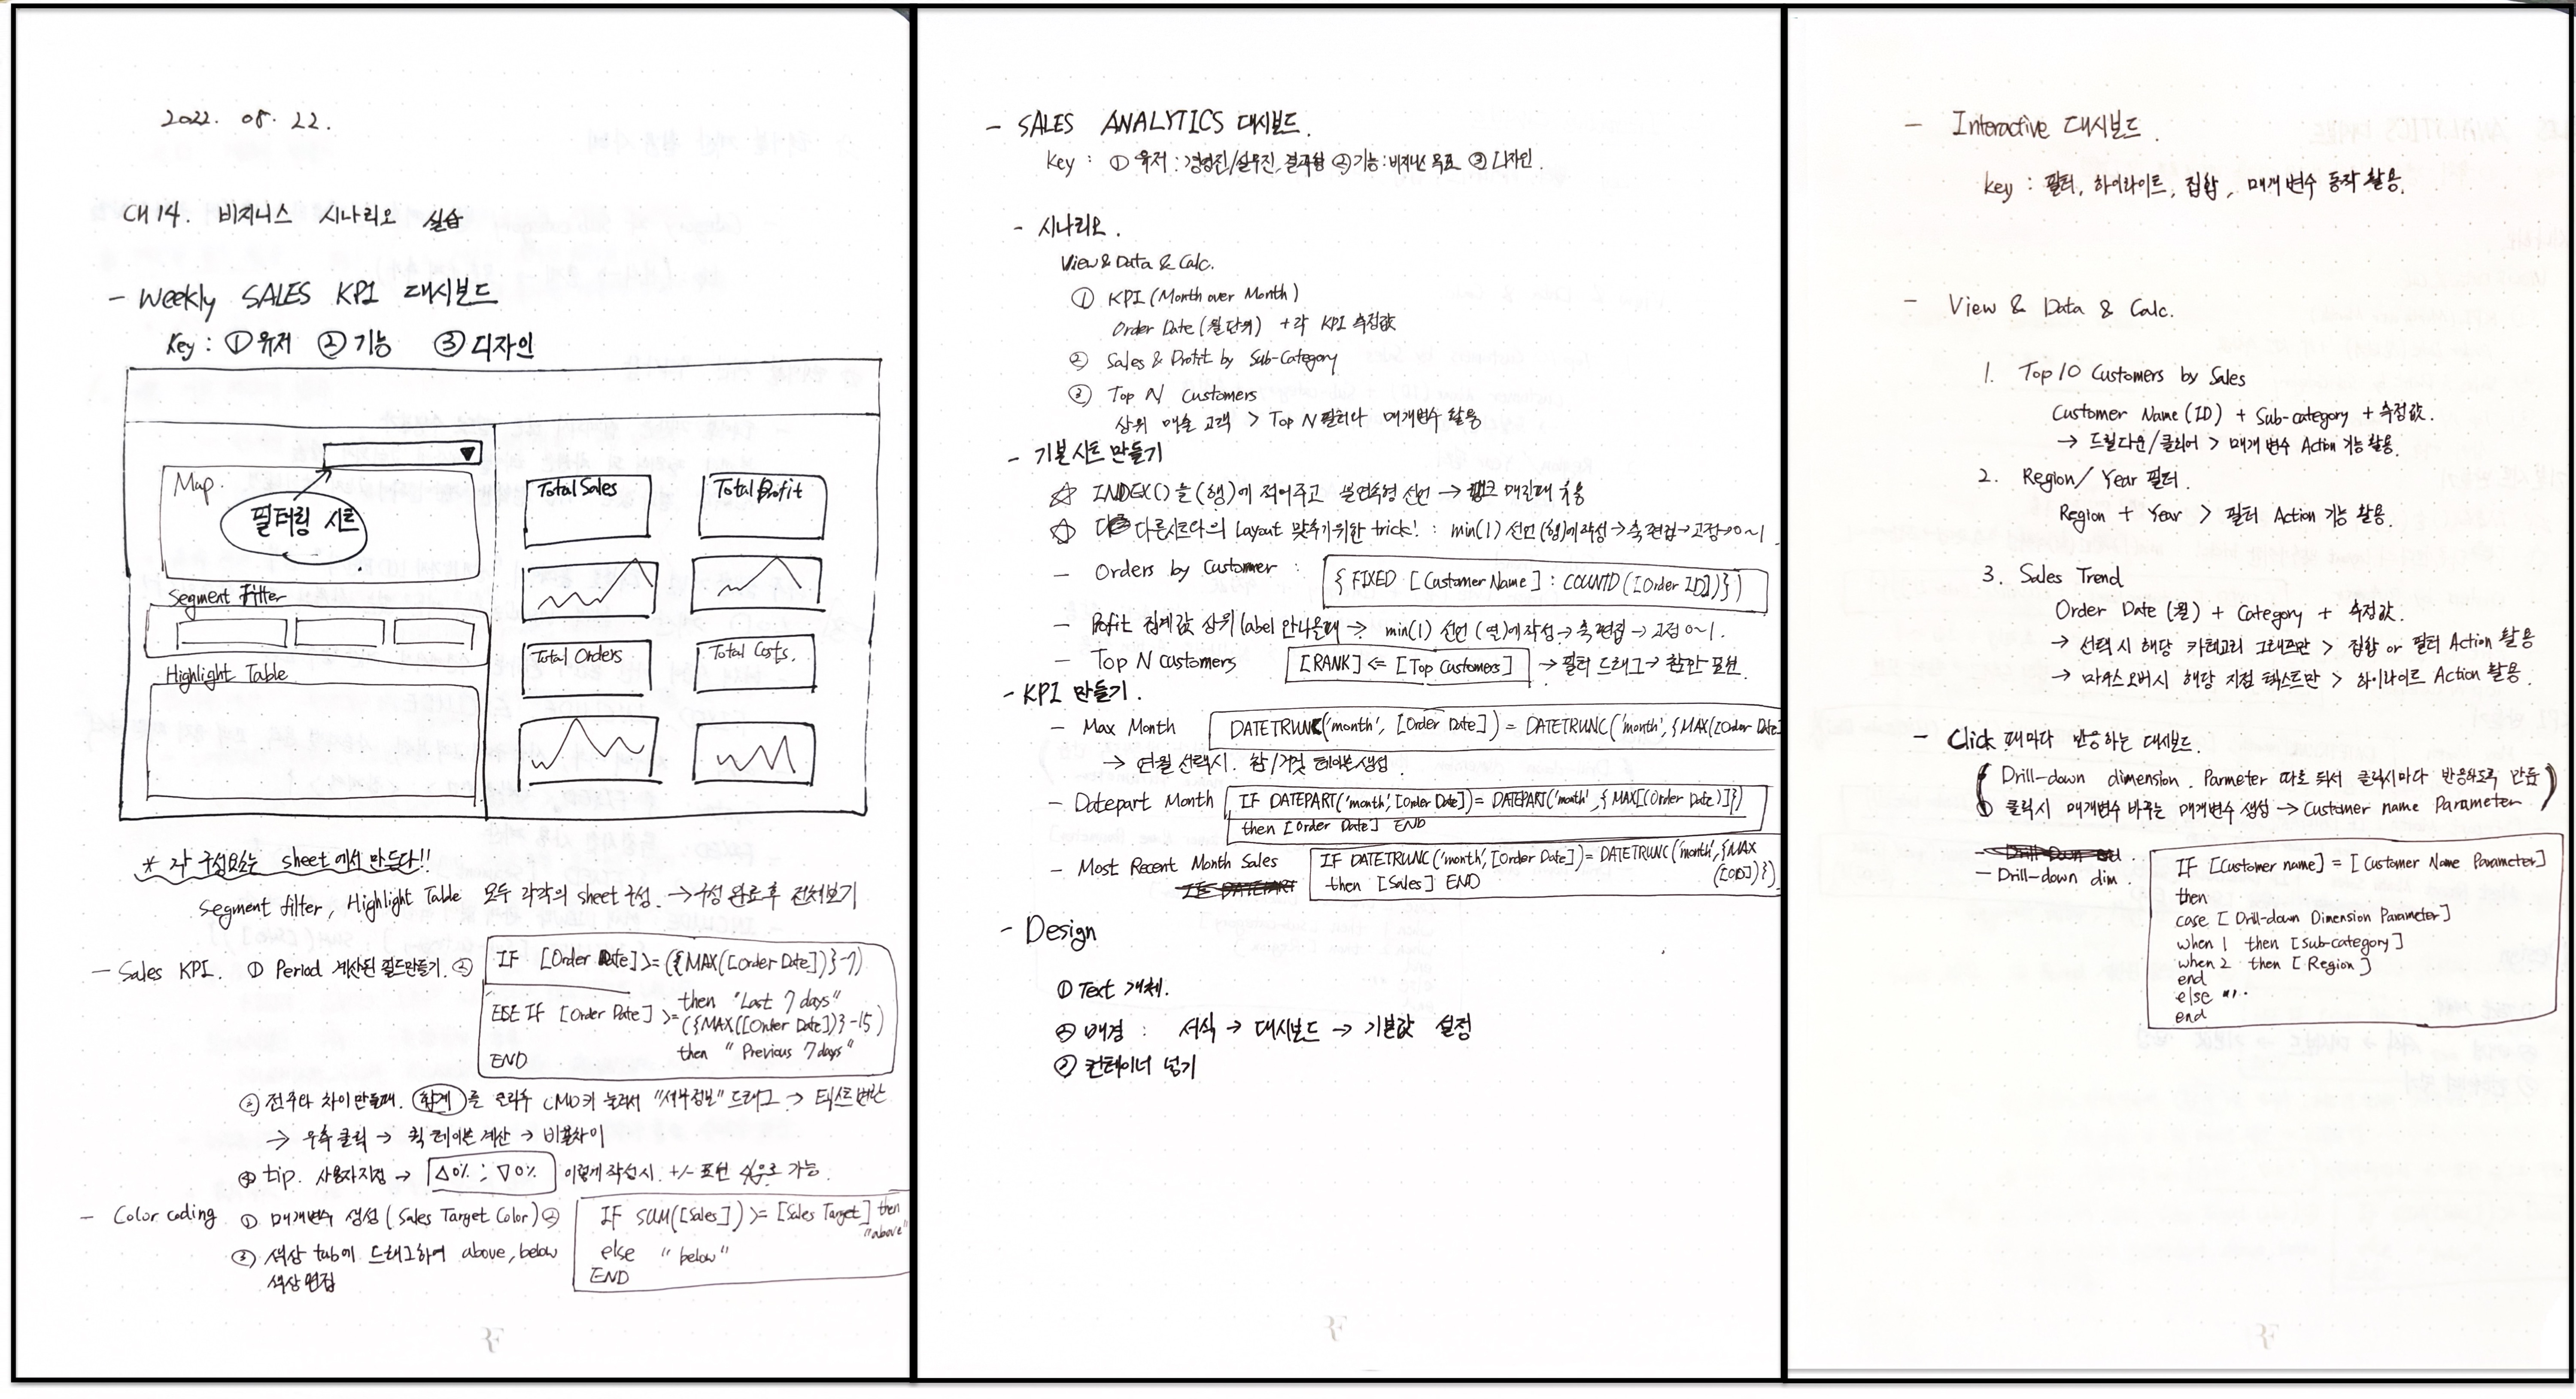 2022. 08. 22.
CH 14. 비지니스 시나리오 실습
- Weekly SALES KPI 대시보드
Key : ① 유저 ② 기능 ③ 디자인
Map.
필터링 시트
Segment Filter
Highlight Table
Total Sales
Total Profit
Total Orders
Total Costs.
* 각 구성요소는 sheet에서 만든다!!
Segment filter, Highlight Table 모두 각각의 sheet 구성. → 구성 완료 후 전체보기
- Sales KPI. ① Period 계산된 필드만들기. ②
IF [Order Date] >= ({MAX([Order Date])}-7)
then "Last 7 days"
ELSE IF [Order Date] >= ({MAX([Order Date])}-15)
then "Previous 7days"
END
③ 전주와 차이만들때. 합계를 CMD키 눌러서 "세부정보" 드래그 → 텍스트변환
→ 우측 클릭 → 퀵 테이블 계산 → 비율차이
④ tip. 사용자지정 → △0% ; ▽0% 이렇게 작성시. +/- 표현 가능.
- Color coding ① 매개변수 생성 (Sales Target Color) ②
IF SUM([Sales]) >= [Sales Target] then
"above"
else "below"
END
③ 색상 tab에 드래그하여 above, below
색상편집
- SALES ANALYTICS 대시보드.
Key : ① 유저 : 경영진/실무진, ② 기능 : 비지니스 목표 ③ 디자인.
- 시나리오.
View & Data & Calc.
① KPI (Month over Month)
Order Date (월단위) + 각 KPI 측정값
② Sales & Profit by Sub-Category
③ Top N Customers
상위 매출 고객 > Top N 필터나 매개변수 활용
- 기본시트 만들기
☆ INDEX()을 (행)에 적어주고 불연속형 선언 → 랭크 매길때 사용
☆ 다른시트와의 Layout 맞추기위한 trick! : min(1) 선언 (행)에 작성 → 축 편집 → 고정 → 0~1
- Orders by Customer : { FIXED [Customer Name] : COUNTD([Order ID])})
- Profit 집계값 상위 label 안나올때 → min(1) 선언 (열)에 작성 → 축 편집 → 고정 0~1.
- Top N customers [RANK] <= [Top Customers] → 필터 드래그 → 참만 표현.
- KPI 만들기.
- Max Month DATETRUNC('month', [Order Date]) = DATETRUNC('month', {MAX([Order Date]
→ 연월 선택시. 참/거짓 테이블생성.
- Datepart Month IF DATEPART('month', [Order Date]) = DATEPART('month', {MAX[(Order Date)]})
then [Order Date] END
- Most Recent Month Sales IF DATETRUNC('month', [Order Date]) = DATETRUNC('month', {MAX
([OD])})
then [Sales] END
- Design
① Text 개체.
② 배경 : 서식 → 대시보드 → 기본값 설정
③ 컨테이너 넣기
- Interactive 대시보드.
key : 필터, 하이라이트, 집합, 매개변수 동작 활용.
- View & Data & Calc.
1. Top 10 Customers by Sales
Customer Name (ID) + Sub-category + 측정값.
→ 드릴다운/클리어 > 매개 변수 Action 기능 활용.
2. Region / Year 필터.
Region + Year > 필터 Action 기능 활용.
3. Sales Trend
Order Date (월) + Category + 측정값.
→ 선택 시 해당 카테고리 그래프만 > 집합 or 필터 Action 활용
→ 마우스오버시 해당 지점 텍스트만 > 하이라이트 Action 활용.
- Click 때마다 반응하는 대시보드.
Drill-down dimension. Parmeter 따로 둬서 클릭시마다 반응하도록 만듦
클릭시 매개변수 바꾸는 매개변수 생성 → Customer name Parameter
- Drill-down dim.
IF [Customer name] = [Customer Name Parameter]
then
case [Drill-down Dimension Parameter]
when 1 then [Sub-category]
when 2 then [Region]
end
else "".
end